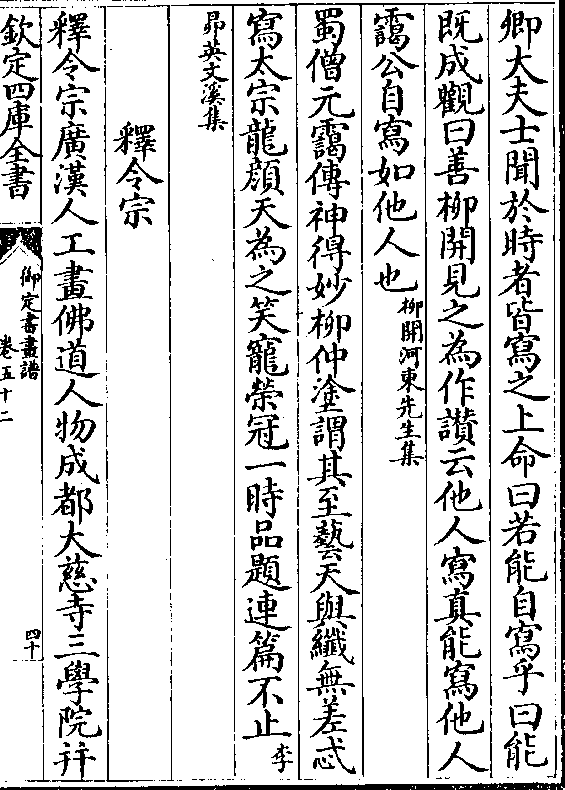 卿大夫士聞於時者皆寫之上命曰若能自寫乎曰能
既成觀曰善柳開見之為作讃云他人寫真能寫他人
靄公自寫如他人也柳開河東先生集
蜀僧元靄傳神得妙柳仲塗謂其至藝天與纎無差忒
寫太宗龍顔天為之笑寵榮冠一時品題連篇不止李
昴英文溪集
釋令宗
釋令宗廣漢人工畫佛道人物成都大慈寺三學院并
欽定四庫全書
御定書畫譜
卷五十二
四十